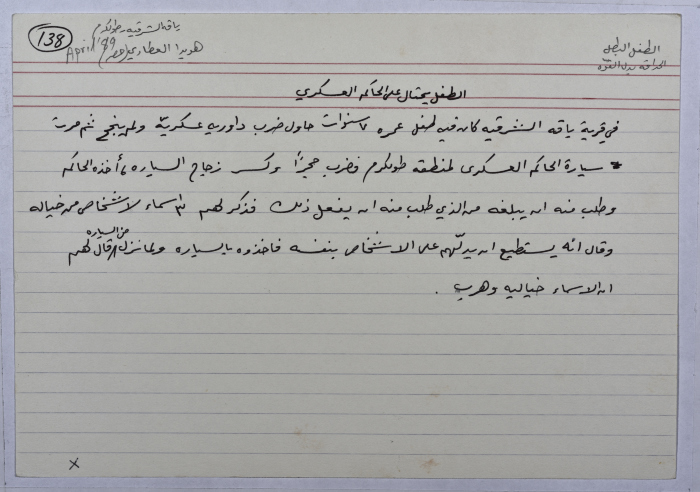 138
باقه الشرقيه - طولكرم
هويدا العطاري (مصر)
April '89
الطفل البطل
الحداقه بدل القوه
الطفل يحتال على الحاكم العسكري
في قرية باقه الشرقيه كان فيه طفل عمره ٧ سنوات حاول ضرب داوريه عسكريّه ولم ينجح ثم مرت
سيارة الحاكم العسكري لمنطقه طولكرم فضرب حجرًا وكسر زجاج السياره، أخذه الحاكم
وطلب منه ان يبلغه من الذي طلب منه ان يفعل ذلك فذكر لهم ٣ اسماء لاشخاص من خياله
وقال انه يستطيع ان يدلّهم على الاشخاص بنفسه فاخذوه بالسياره ولما نزل من السياره قال لهم
ان الاسماء خياليه وهرب .
x